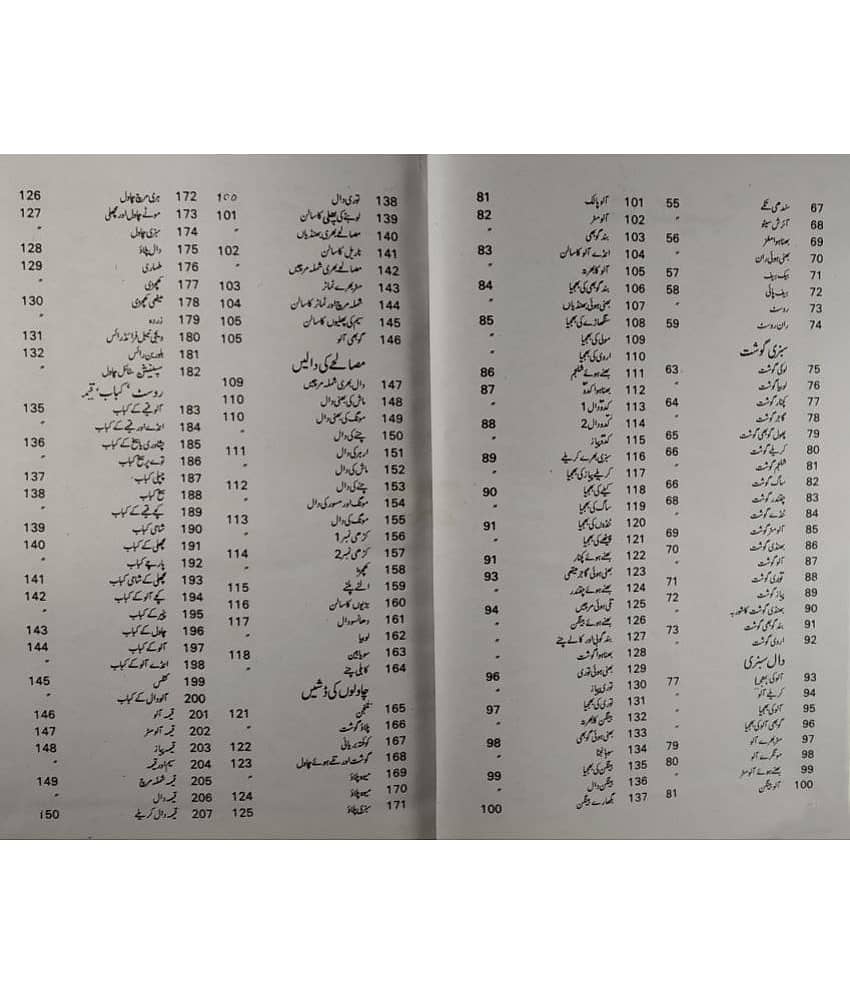 67 سندھی تکے 55
68 آئرش سٹیو "
69 بھنا ہوا مغز 56
70 بھنی ہوئی ران "
71 بیک بیف 57
72 بیف پائی 58
73 روسٹ "
74 ران روسٹ 59
سبزی گوشت
75 لوکی گوشت 63
76 لوبیا گوشت "
77 کچنار گوشت 64
78 گاجر گوشت "
79 پھول گوبھی گوشت 65
80 کریلے گوشت 66
81 شلجم گوشت "
82 ساگ گوشت 66
83 چقندر گوشت 68
84 ٹنڈے گوشت "
85 آلو مٹر گوشت 69
86 بھنڈی گوشت 70
87 آلو گوشت "
88 توری گوشت 71
89 پیاز گوشت 72
90 بھنڈی گوشت کا شوربہ "
91 بند گوبھی گوشت 73
92 اروی گوشت "
دال سبزی
93 آلو کی بھجیا 77
94 کریلے آلو "
95 آلو کی بھجیا "
96 گوبھی آلو کی بھجیا "
97 مٹر بھرے آلو 79
98 مونگرے آلو 80
99 بھنے ہوئے آلو مٹر "
100 آلو بینگن 81
101 آلو پالک 81
102 آلو مٹر 82
103 بند گوبھی "
104 انڈے آلو کا سالن 83
105 آلو کا بھرتہ "
106 بند گوبھی کی بھجیا 84
107 بھنی ہوئی بھنڈیاں "
108 سنگھاڑے کی بھجیا 85
109 مولی کی بھجیا "
110 اروی کی بھجیا "
111 بھنے ہوئے شلجم 86
112 بھنا ہوا کدو 87
113 کدو دال 1 "
114 کدو دال 2 88
115 کدو پیاز "
116 سبزی بھرے کریلے 89
117 کریلے پیاز کی بھجیا "
118 کیلے کی بھجیا 90
119 ساگ کی بھجیا "
120 ٹنڈوں کی بھجیا 91
121 پیٹھے کی بھجیا "
122 بھنے ہوئے کچنار 91
123 بھنی ہوئی گاجر میتھی 93
124 بھنے ہوئے چقندر "
125 تلی ہوئی مرچیں 94
126 بھنے ہوئے بینگن "
127 بند گوبھی اور کالے چنے "
128 بھنا ہوا گوشت "
129 بھنی ہوئی توری 96
130 توری پیاز "
131 توری کی بھجیا 97
132 بینگن کا بھرتہ "
133 بھنی ہوئی گوبھی 98
134 سوہانجنا "
135 بینگن کی بھجیا 99
136 بینگن دال "
137 بگھارے بینگن 100
138 توری دال 100
139 لوبئے کی پھلی کا سالن 101
140 مصالحے بھری بھنڈیاں "
141 ناریل کا سالن 102
142 مصالحے بھری شملہ مرچیں "
143 مٹر بھرے ٹماٹر 103
144 شملہ مرچ اور ٹماٹر کا سالن 104
145 سیم کی پھلیوں کا سالن 105
146 گوبھی آلو 105
مصالحے کی دالیں
147 دال بھری شملہ مرچیں 109
148 ماش کی بھنی دال 110
149 مونگ کی بھنی دال 110
150 چنے کی دال "
151 ارہر کی دال 111
152 ماش کی دال "
153 چنے کی دال 112
154 مونگ اور مسور کی دال "
155 مونگ کی دال 113
156 کڑھی نمبر 1 "
157 کڑھی نمبر 2 114
158 کھچڑا "
159 الٹے پلٹے 115
160 بڑیوں کا سالن 116
161 دھانسو دال 117
162 لوبیا "
163 سویابین 118
164 کابلی چنے "
چاولوں کی ڈشیں
165 متنجن 121
166 پلاؤ گوشت "
167 کوفتہ بریانی 122
168 گوشت اور تلے ہوئے چاول 123
169 میوہ پلاؤ "
170 میوہ پلاؤ 124
171 سبزی پلاؤ 125
172 ہری مرچ چاول 126
173 موٹے چاول اور مچھلی 127
174 سبزی چاول "
175 دال پلاؤ 128
176 ملہاری 129
177 کھچڑی "
178 میٹھی کھچڑی 130
179 زردہ "
180 ویجی ٹیبل فرائیڈ رائس 131
181 بلوربن رائس 132
182 سپینیش سٹائل چاول "
روسٹ ‘ کباب ‘ قیمہ
183 آلو قیمے کے کباب 135
184 انڈے اور قیمے کے کباب "
185 پشاوری یا سیخ کے کباب 136
186 توے پر سیخ کباب "
187 چپلی کباب 137
188 سیخ کباب 138
189 کچے قیمے کے کباب "
190 شامی کباب 139
191 مچھلی کے کباب 140
192 پارچے کباب "
193 مچھلی کے شامی کباب 141
194 کچے آلو کے کباب 142
195 پنیر کے کباب "
196 چاول کے کباب 143
197 آلو کے کباب 144
198 انڈے آلو کے کباب "
199 کٹلس 145
200 آلو دال کے کباب "
201 قیمہ آلو 146
202 قیمہ آلو مٹر 147
203 قیمہ پیاز 148
204 سیم اور قیمہ "
205 قیمہ شملہ مرچ 149
206 قیمہ دال "
207 قیمہ دال کریلے 150